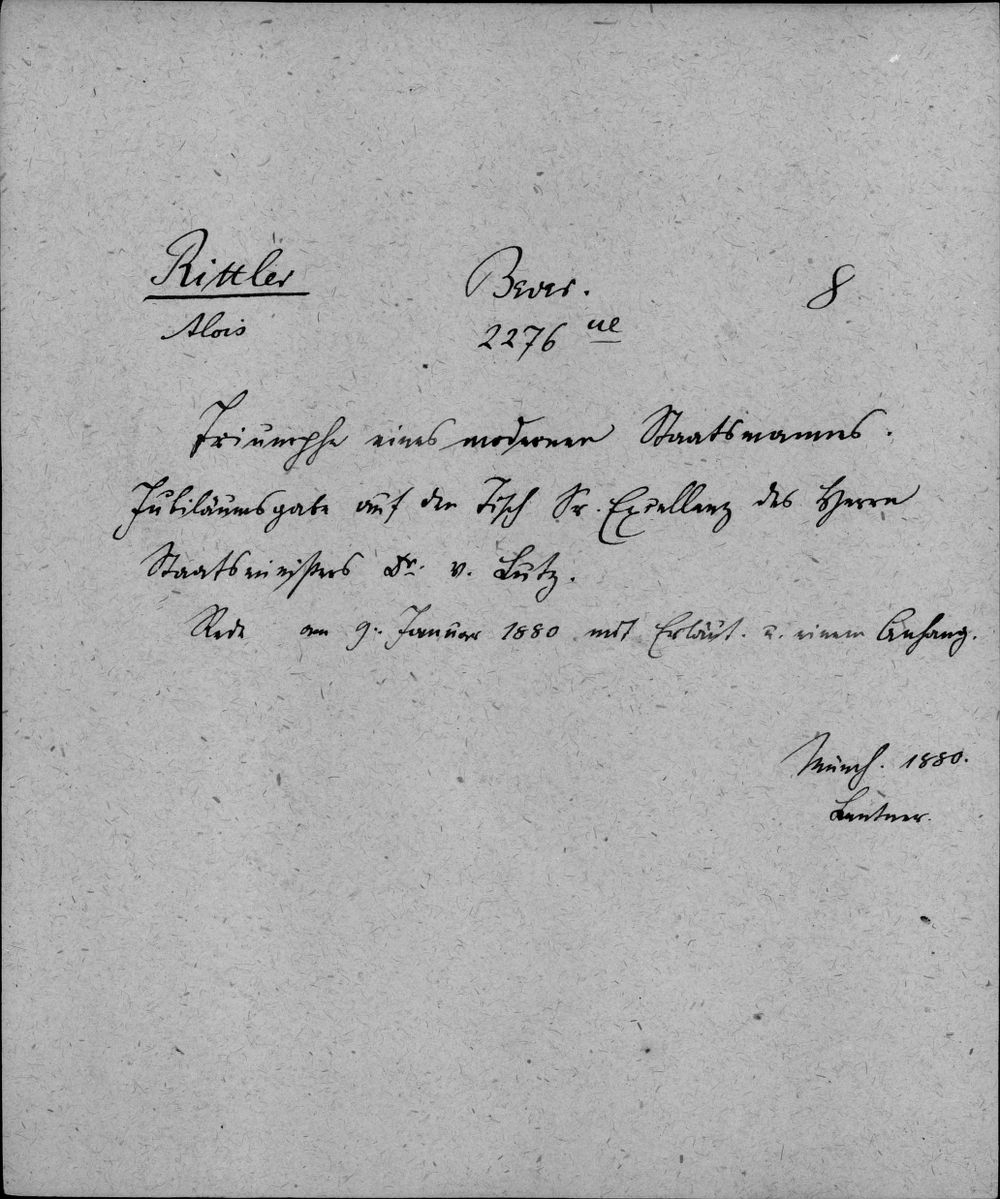 Rittler Bavar. 8
Alois 2276 ue
Triumphe eines modernen Staatsmannes.
Jubiläumsgabe auf den Tisch Sr. Excellenz des Herrn
Staatsministers Dr. v. Lutz.
Rede am 9. Januar 1880 mit Erläut. u. einem Anhang.
Münch. 1880.
Lentner.